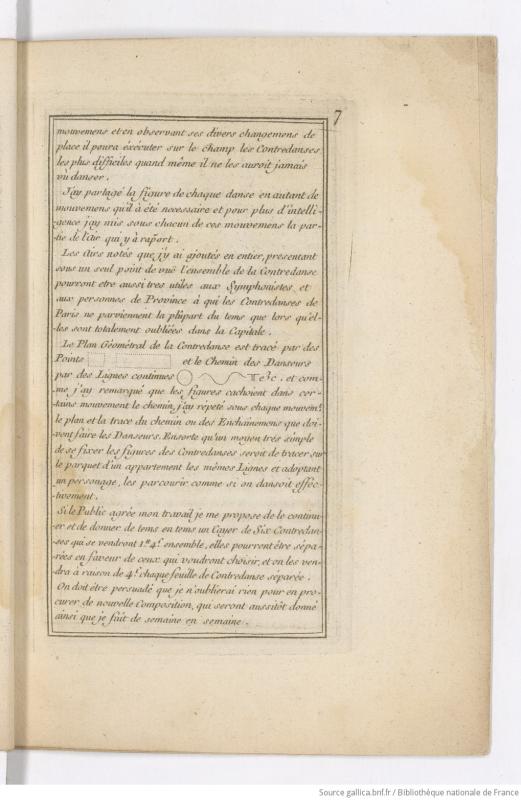 7
mouvemens et en observant ses divers changemens de
place il poura éxécuter sur le champ les Contredanses
les plus difficiles quand même il ne les auroit jamais
vü danser.
J'ay partagé la figure de chaque danse en autant de
mouvemens qu'il à été necessaire et pour plus d'intelli-
gence j'ay mis sous chacun de ces mouvemens la par-
tie de l'Air qui y à raport.
Les Airs notés que j'y ai ajoutés en entier, presentant
sous un seul point de vuë l'ensemble de la Contredanse
pourront etre aussi tres utiles aux Symphonistes, et
aux personnes de Province à qui les Contredanses de
Paris ne parviennent la plûpart du tems que lors qu'el-
les sont totalement oubliées dans la Capitale.
Le Plan Géométral de la Contredanse est tracé par des
Points et le Chemin des Danseurs
par des Lignes continues &c. et com-
me j'ay remarqué que les figures cachoient dans cer-
tains mouvement le chemin, j'ay repeté sous chaque mouvem.t
le plan et la trace du chemin ou des Enchainemens que doi-
vent faire les Danseurs. Ensorte qu'un moyen trés simple
de se fixer les figures des Contredanses seroit de tracer sur
le parquet d'un appartement les mêmes Lignes et adoptant
un personage, les parcourir comme si on dansoit effec-
tivement.
Si le Public agrée mon travail je me propose de le continu-
er et de donner de tems en tems un Cayer de Six Contredan-
ses qui se vendront 1.tt 4.s ensemble, elles pourront être sépa-
rées en faveur de ceux qui voudront choisir, et on les ven-
dra à raison de 4.s chaque feuille de Contredanse séparée.
On doit être persuadé que je n'oublierai rien pour en pro-
curer de nouvelle Composition, qui seront aussitôt donné
ainsi que je fait de semaine en semaine.
Source gallica.bnf.fr / Bibliothèque nationale de France